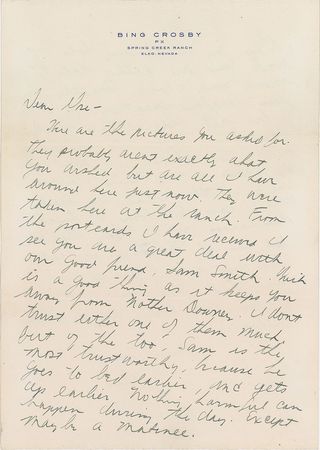 BING CROSBY
PX
SPRING CREEK RANCH
ELKO, NEVADA
Dear
Here are the pictures you asked for.
They probably arent exactly what
you wished but are all I have
around here just now. They were
taken here at the ranch. From
the postcards I have received I
see you are a great deal with
our good friend, Sam Smith. Which
is a good thing as it keeps you
away from Mother Downey. I dont
trust either one of them much
but of the two, Sam is the
most trustworthy, because he
goes to bed earlier, and gets
up earlier. Nothing harmful can
happen during the day. Except
maybe a matinee.